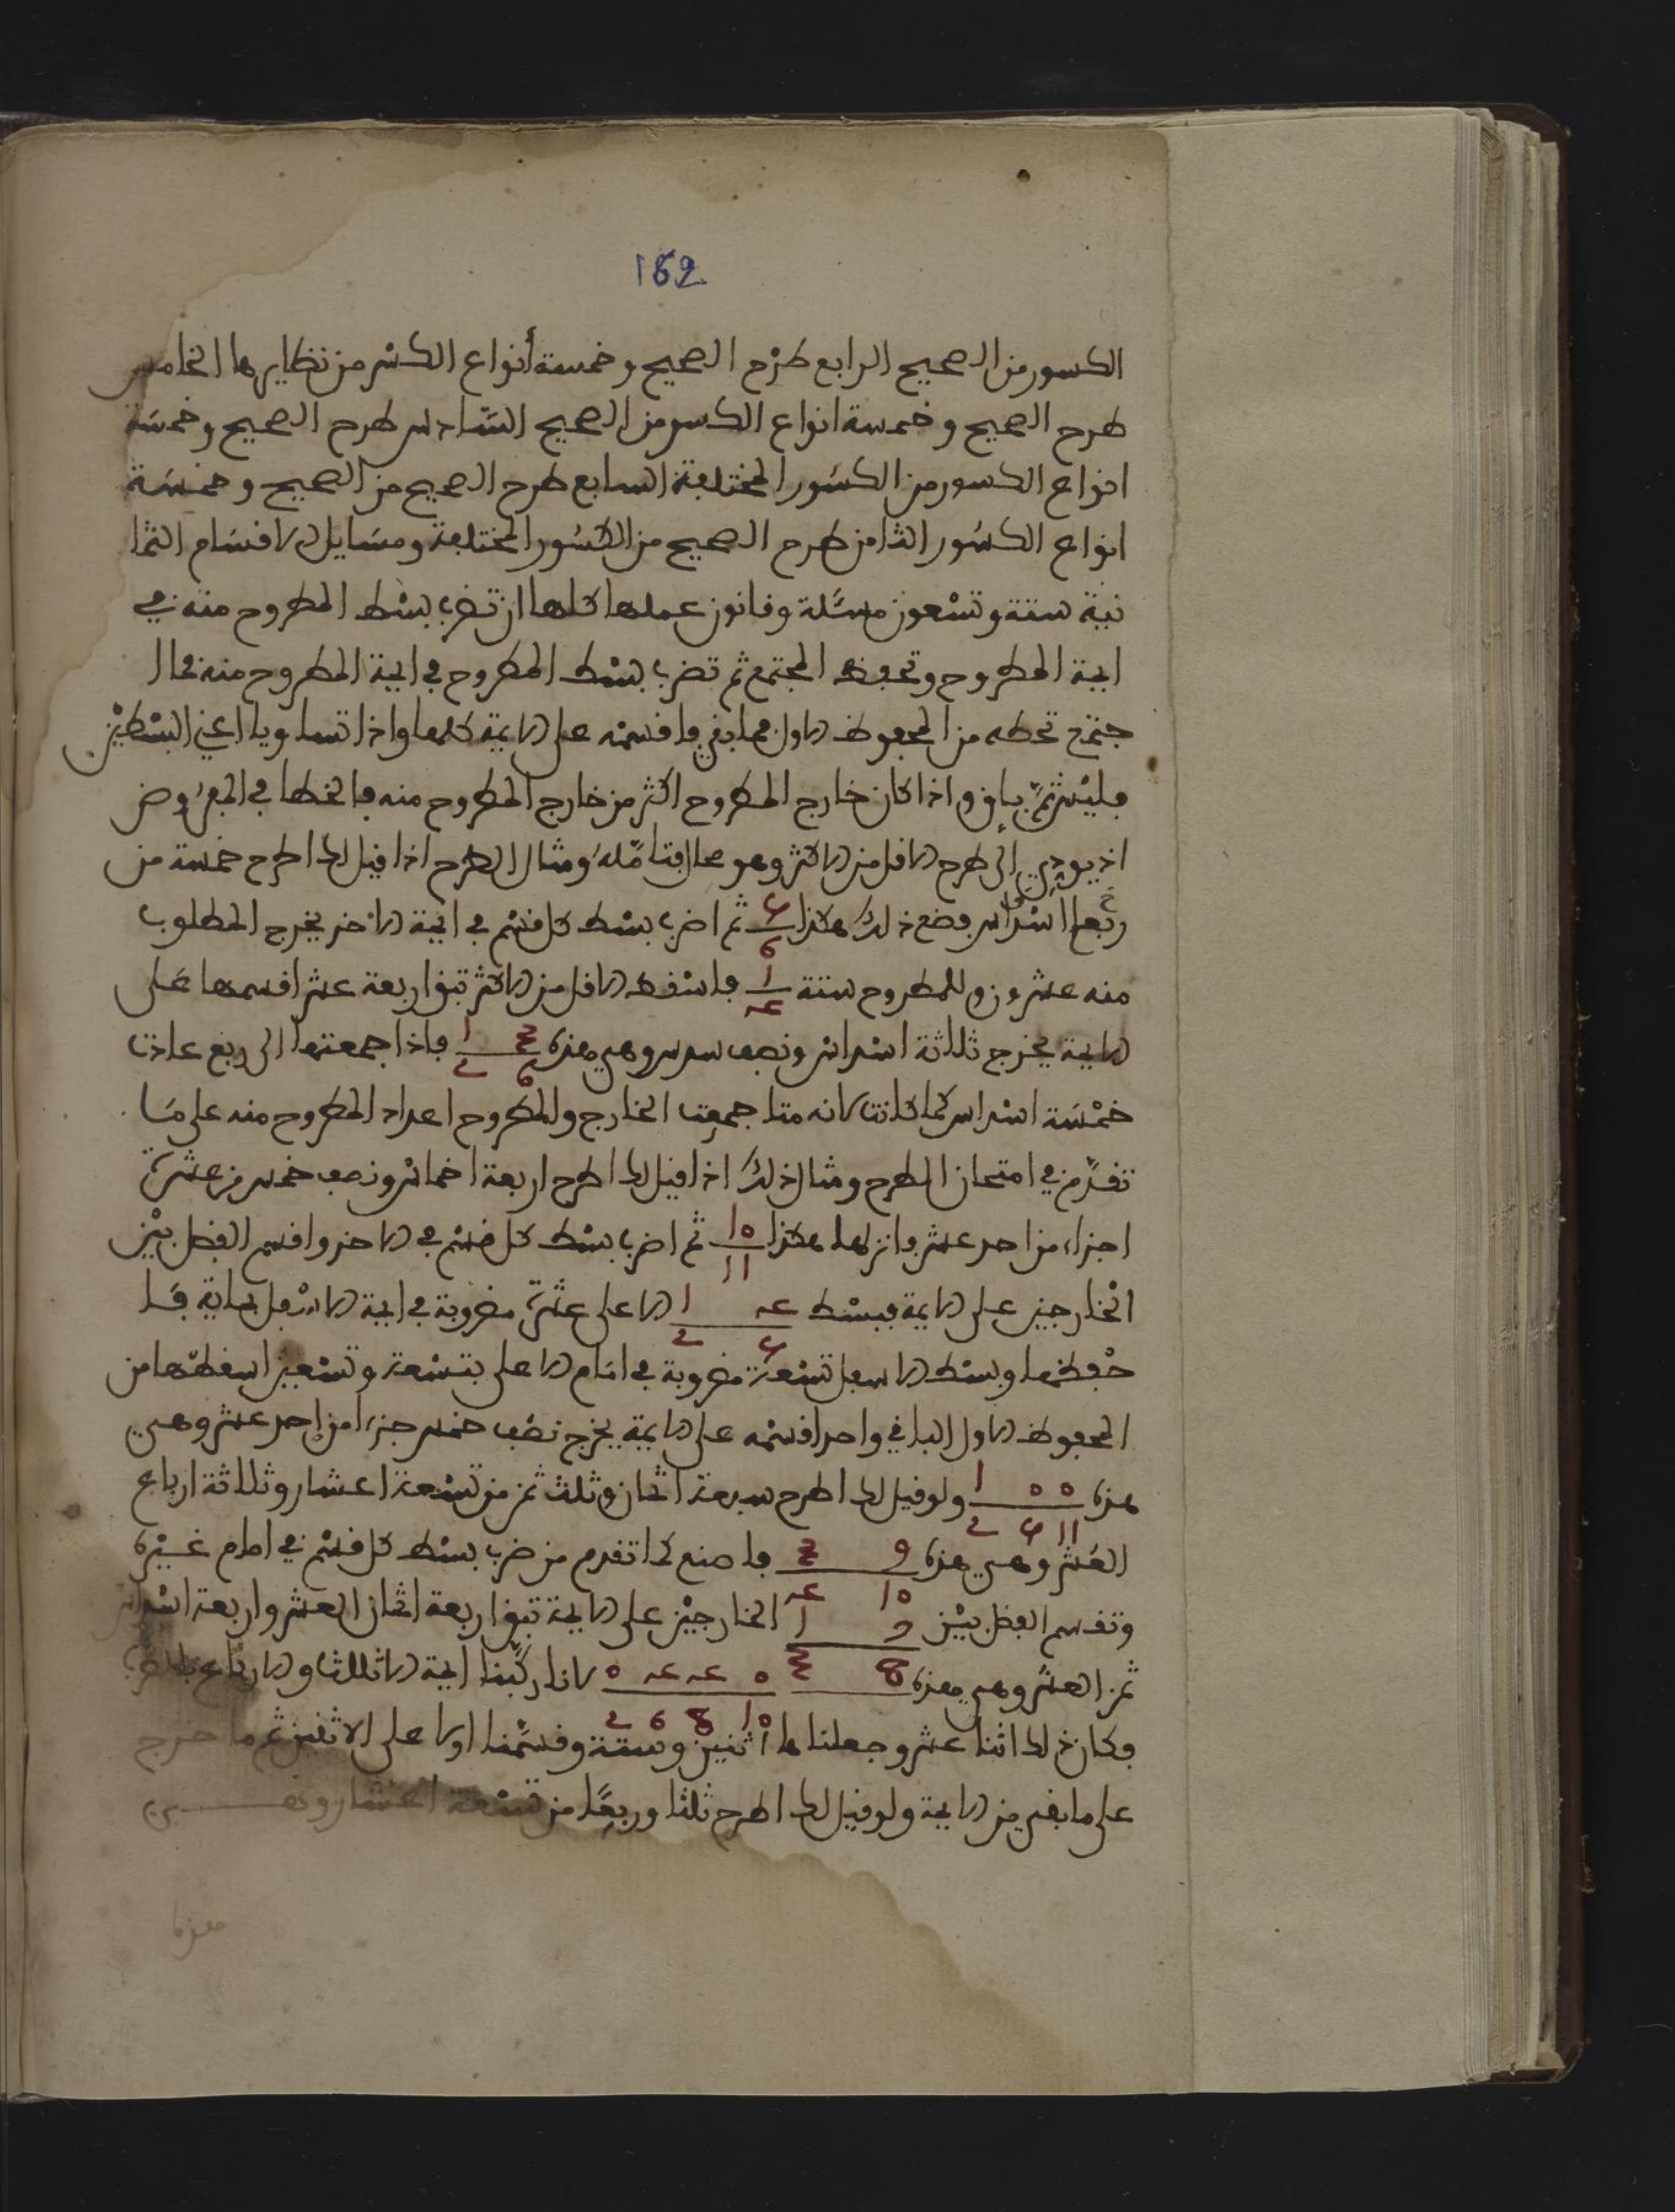 162
الكسور من الصحيح الرابع طرْح الصحيح وخمسة أنواع الكسْر من نظايرها الخامس
طرح الصحيح وخمسة انواع الكسر من الصحيح السّادس طرح الصحيح وخمسَة
انواع الكسور من الكسَور المختلفة السابع طرح الصحيح من الصحيح وخمسَة
انواع الكسُور الثامن طرح الصحيح من الكسُور المختلفة ومسَايل الاقسَام الثما
نية ستة وتسْعون مسْئلة وقانون عملها كلها ان تضرب بسْط المطروح منه في
ايمة المطروح وتحفظ المجتمع ثم تضرب بسْط المطروح في ايمة المطروح منه فما ا
جتمع تحطه من المحفوظ الاول فما بقي فاقسمْه على الايمة كلها واذا تساويا اعني البسْطيْن
فليْس ثمّ باقٍ واذا كان خارج المطروح اكثر من خارج المطروح منه فالخطا في المفروض
اذ يودي الى طرح الاقل من الاكثر وهو محال فتامّلهُ ومثال الطرح اذا قيل لك اطرح خمسة من
ربعا اسْداس فضع ذلك هكذا ٥ ٦ ثم اضرب بسْط كل قسْم في ايمة الاخر يخرج المطلوب
منه عشرون وللمطروح ستة ١ ٤ فاسْقط الاقل من الاكثر تبق اربعة عشر اقسمها عَلى
الايمة يخرج ثلاثة اسْداس ونصف سدس وهي هذه ٣ ١ ٦ ٢ فاذا جمعتها الى ربع عادت
خمْسَة اسْداس كما كانت لانه متا جمعت الخارج والمطروح اعداد المطروح منه على مَا
تقدّم في امتحان الطرح ومثال ذلك اذا قيل لك اطرح اربعة اخماس ونصف خمس من عشَرة
اجزاء من احد عشر وانزلها هكذا ١٠ ١١ ثم اضرب بسْط كل قسْم في الاخر واقسم الفضل بيْن
الخارجين على الايمة فبسْط ٤ ١ ٥ ٢ الاعلى عشَرة مضروبة في ايمة الاسْفل بماية فَا
حْفظها وبسْط الاسفل تسْعة مضروبة في امَام الاعلى بتسْعة وتسْعين اسقطها من
المحفوظ الاول الباقي واحد اقسمْه على الايمة يخرج نصْف خمس جزء من احد عشر وهي
هذه ٠ ٠ ١ ١١ ٥ ٢ ولو قيل لك اطرح سبعة اثمان وثلث ثمن من تسْعة اعشار وثلاثة ارباع
العُشر وهي هذه ٩ ٣ ١٠ ٤ فاصنع كما تقدم من ضرب بسْط كل قسْم في امام غيْره
وتقسم الفضل بيْن ٧ ١ ٨ ٣ الخارجيْن على الايمة تبق اربعة اثمان العشر واربعة اسْداس
ثمن العشر وهي هذه ٠ ٤ ٤ ٠ ١٠ ٨ ٦ ٢ لانا ركّبنا ايمة الاثلاث والارباع
فكان ذلك اثنا عشر وجعلنا لها اثنين وستة وقسَمْنا اولا على الاثنين ثم ما خرج
على ما بقي من الايمة ولو قيل لك اطرح ثلثا وربعًا من تسْعة اعشار ونصف
هذه